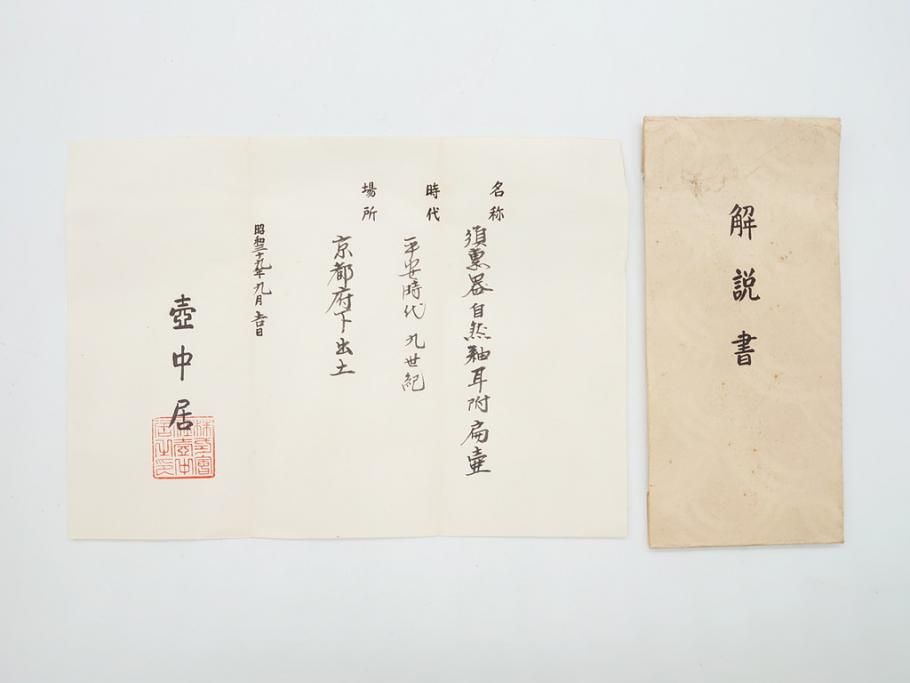 名称
須恵器自然釉耳附扁壷
時代
平安時代 九世紀
場所
京都府下出土
昭和三十九年九月吉日
壺中居
株式会社壺中居之印
解説書